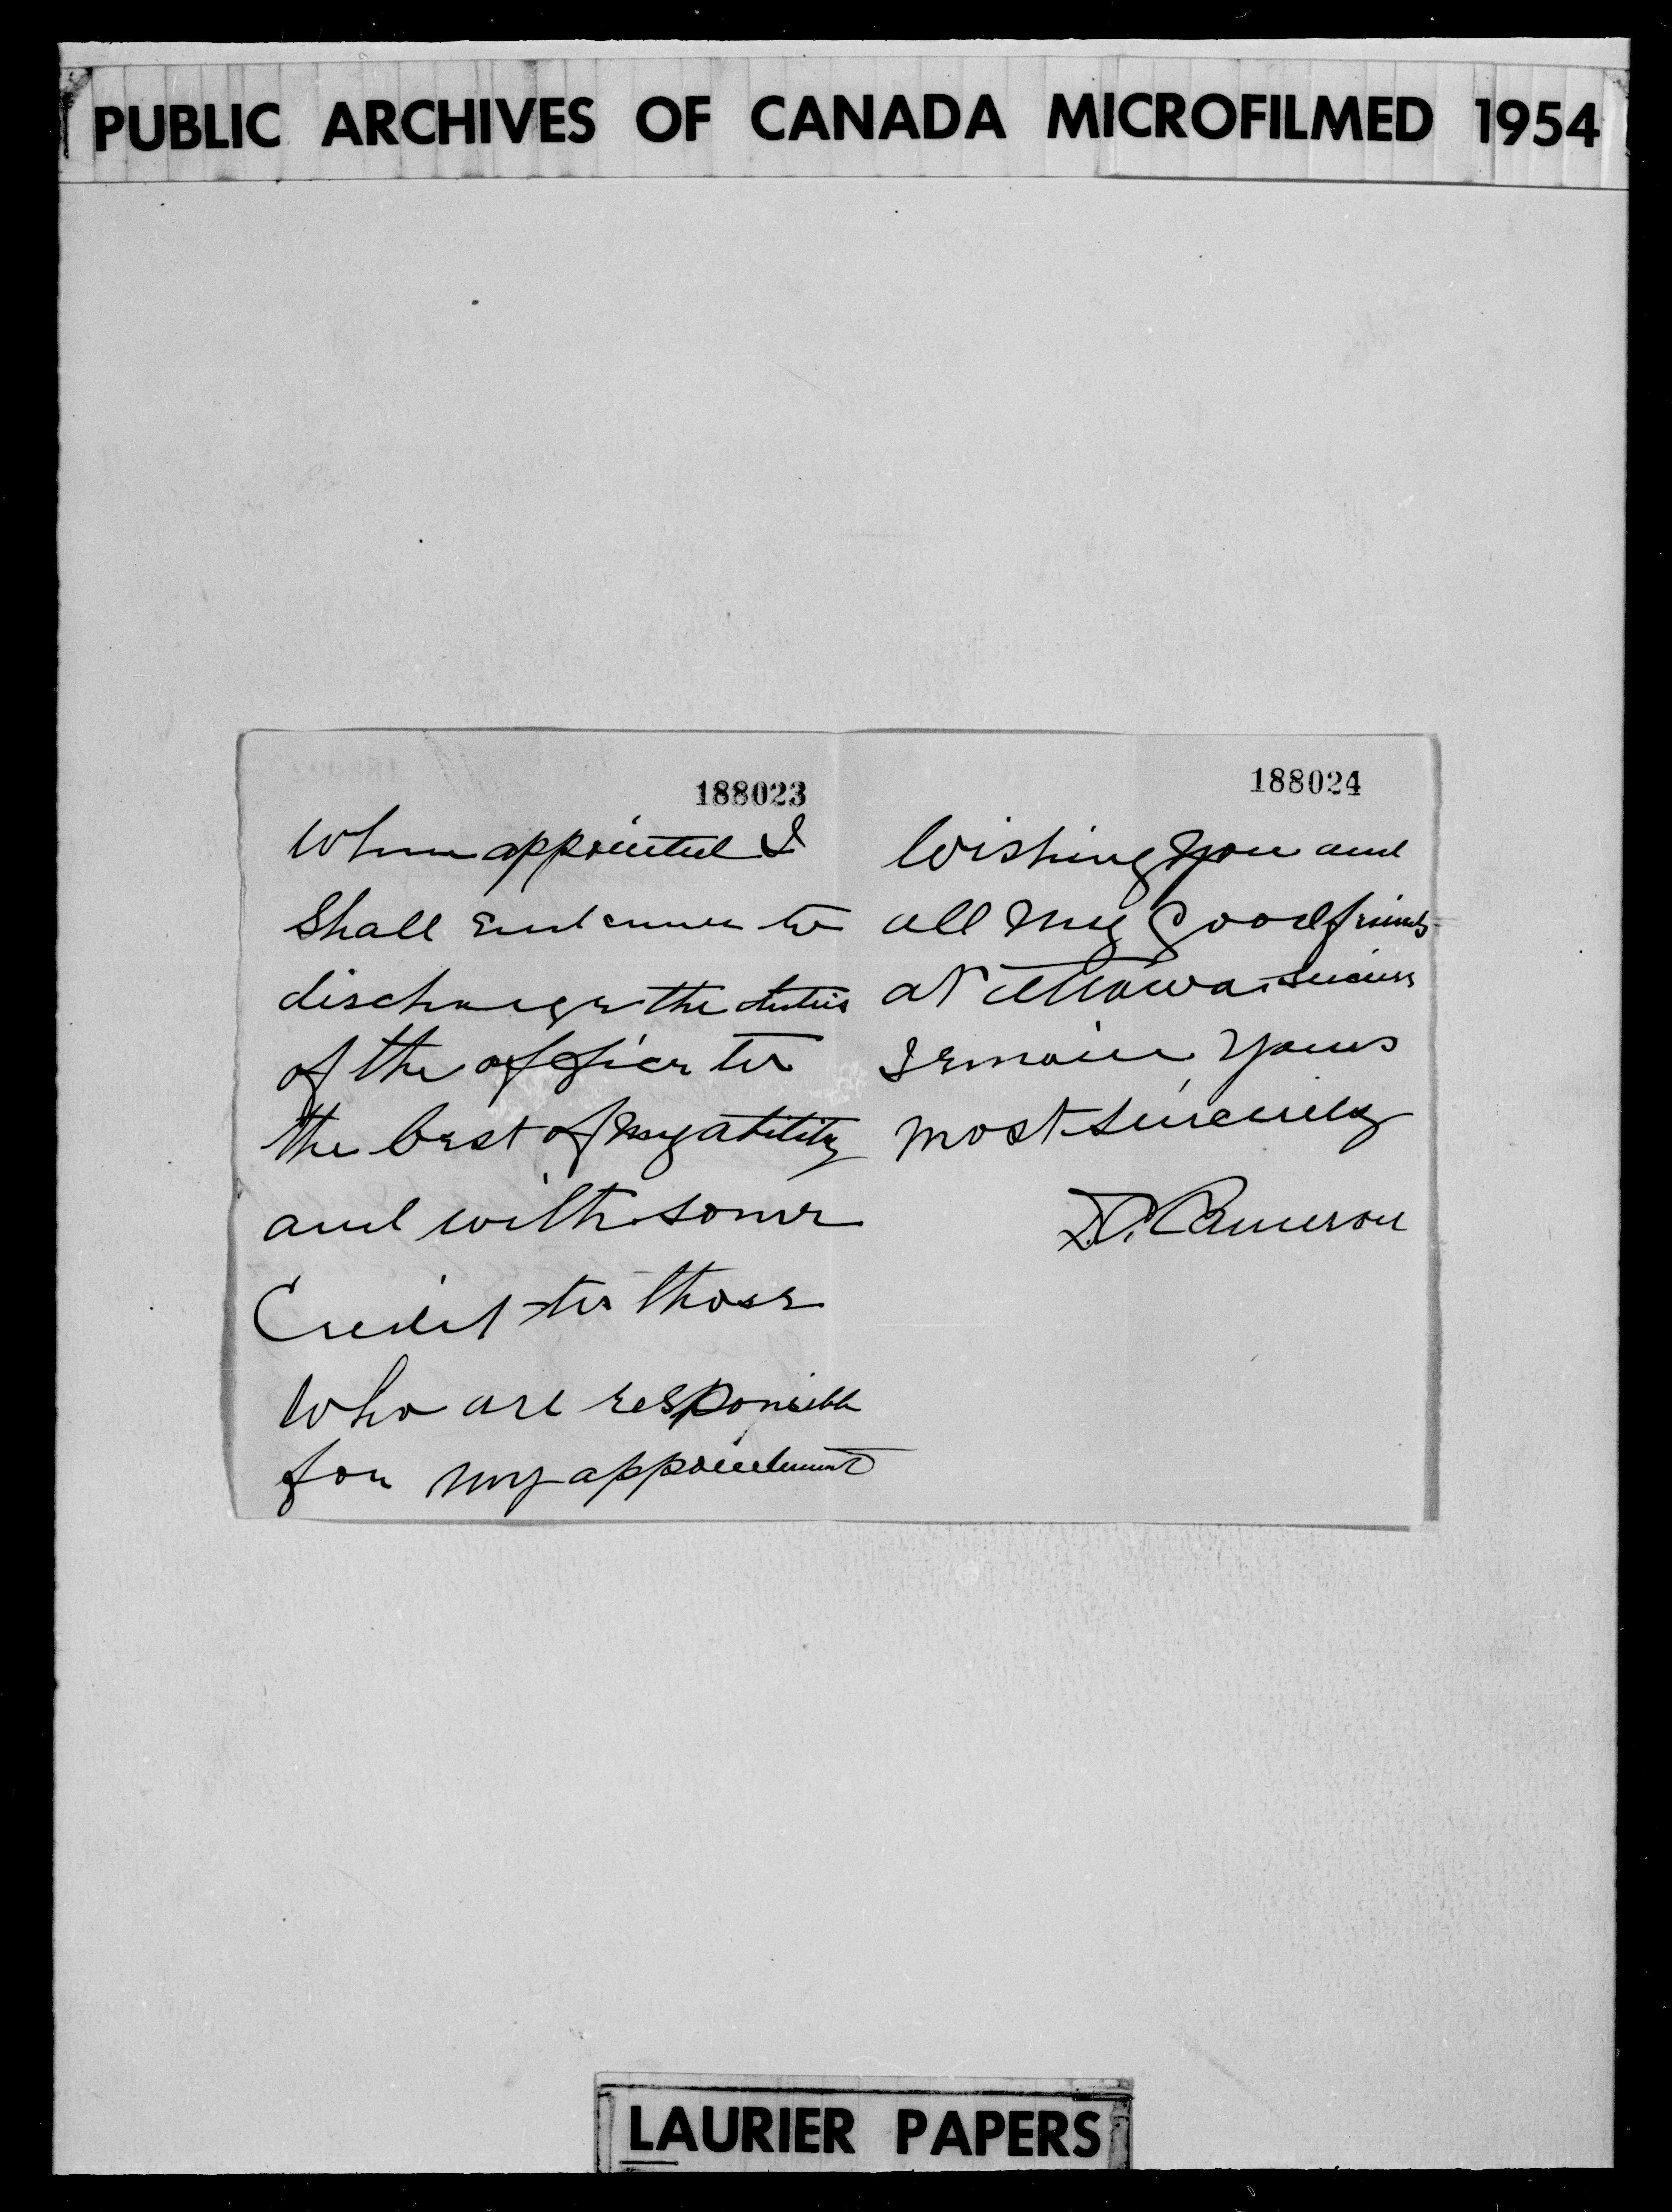 PUBLIC ARCHIVES OF CANADA MICROFILMED 1954
188023
When appointed I
Shall endeavour to
discharge the duties
of the office to
the best of my ability
and with some
Credit to those
Who are responsible
for my appointment
188024
Wishing you and
all my good friends
at Ottawa success
I remain yours
most sincerely
D. Cameron
LAURIER PAPERS